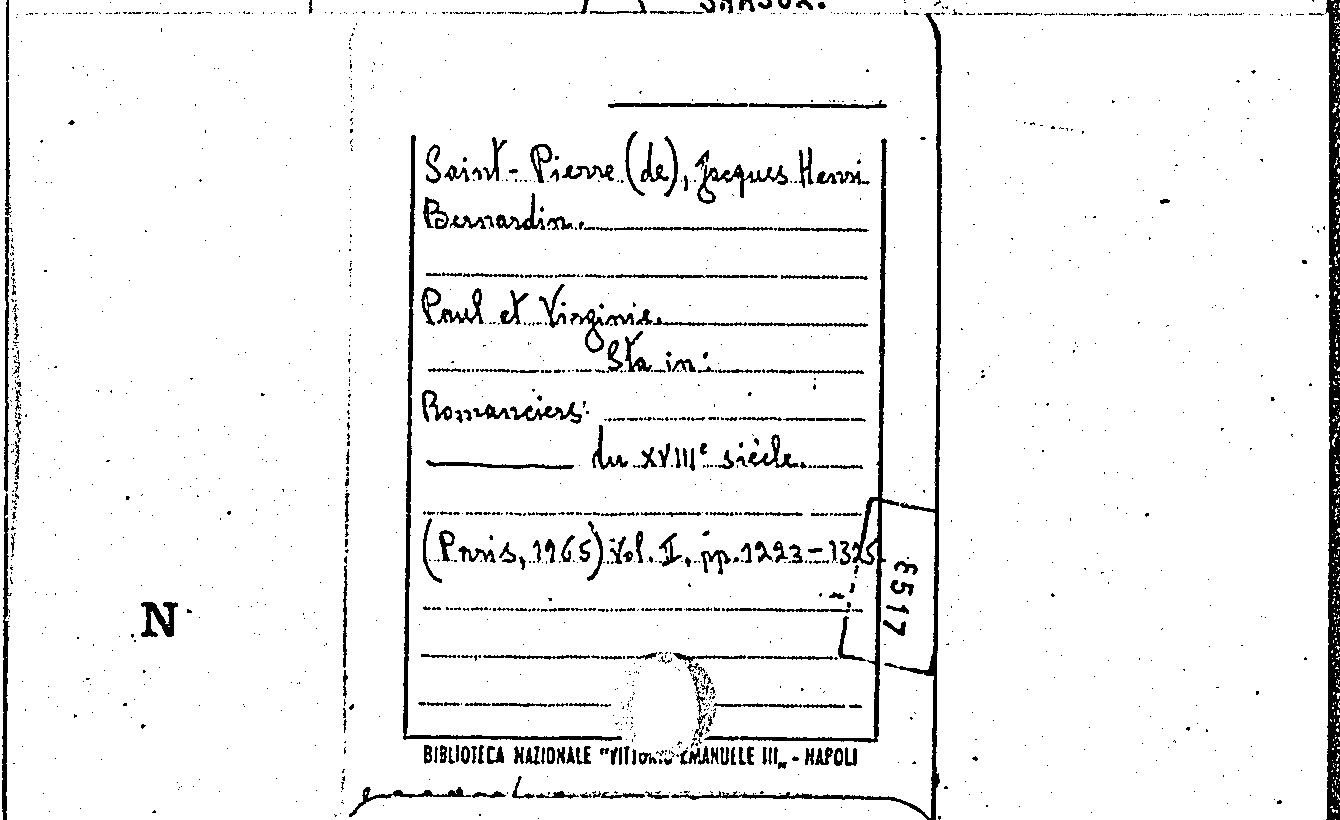 Saint-Pierre (de), Jacques Henri
Bernardin.
Paul et Virginie.
Sta in:
Romanciers
du XVIIIe siècle.
(Paris, 1965) Vol. II, pp. 1223-1325.
E517
N
BIBLIOTECA NAZIONALE "VITTORIO EMANUELE III„ - NAPOLI